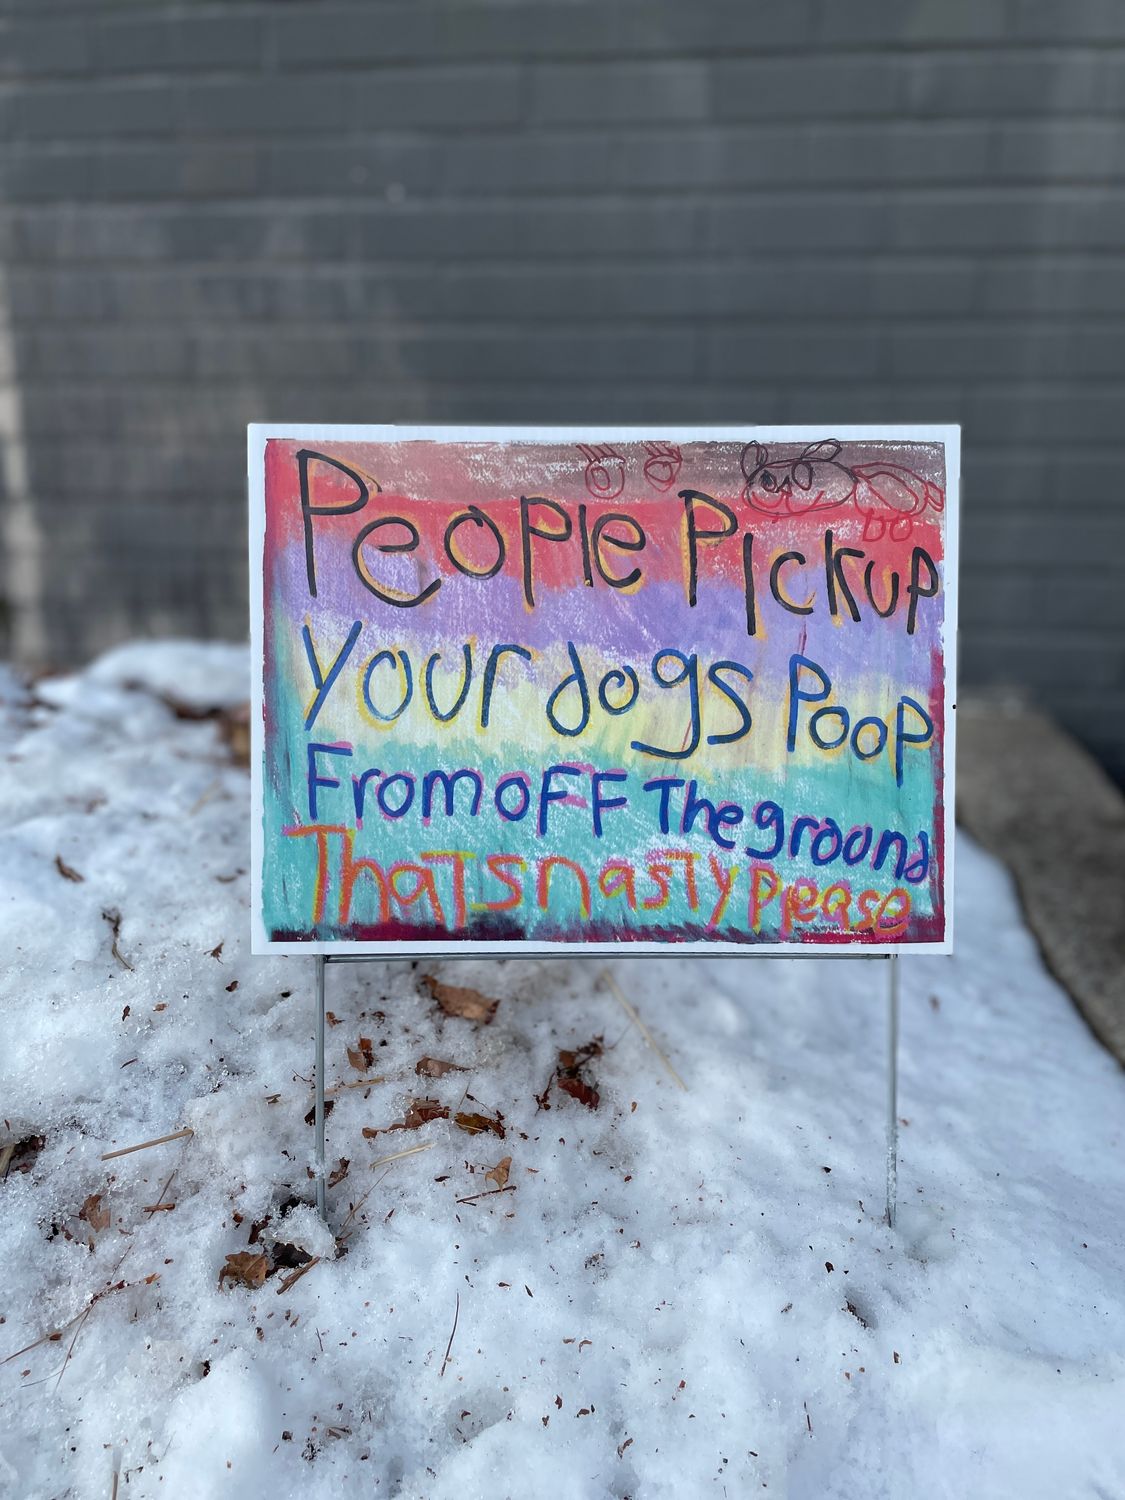 People Pickup
Your dogs Poop
From oFF The ground
ThaTs nasTy Please